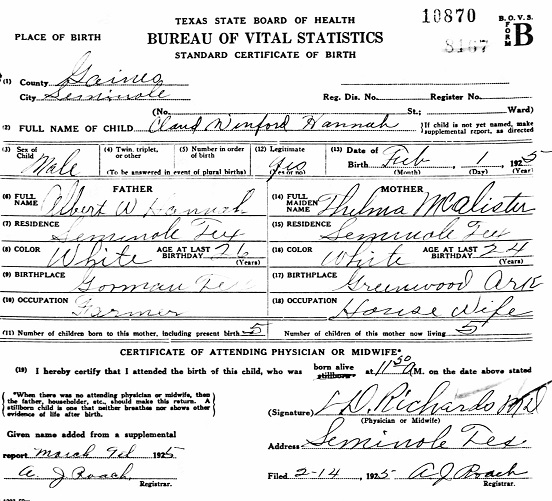 TEXAS STATE BOARD OF HEALTH
10870
B. O. V. S.
FORM B
PLACE OF BIRTH
BUREAU OF VITAL STATISTICS
8107
STANDARD CERTIFICATE OF BIRTH
(1) County Gaines
City Seminole Reg. Dis. No. Register No.
(No. St.; Ward)
(2) FULL NAME OF CHILD Claud Winford Hannah
If child is not yet named, make supplemental report, as directed
(3) Sex of Child Male
(4) Twin, triplet, or other
(5) Number in order of birth
(To be answered in event of plural births)
(12) Legitimate Yes (Yes or no)
(13) Date of Birth Feb 1, 1925
(Month) (Day) (Year)
FATHER
MOTHER
(6) FULL NAME Albert W Hannah
(14) FULL MAIDEN NAME Thelma McAlister
(7) RESIDENCE Seminole Tex
(15) RESIDENCE Seminole Tex
(8) COLOR White AGE AT LAST BIRTHDAY 26 (Years)
(16) COLOR White AGE AT LAST BIRTHDAY 24 (Years)
(9) BIRTHPLACE Gorman Tex
(17) BIRTHPLACE Greenwood Ark
(10) OCCUPATION Farmer
(18) OCCUPATION House Wife
(11) Number of children born to this mother, including present birth 5
Number of children of this mother now living 5
CERTIFICATE OF ATTENDING PHYSICIAN OR MIDWIFE*
(19) I hereby certify that I attended the birth of this child, who was born alive stillborn at 11 50 A M. on the date above stated
*When there was no attending physician or midwife, then
the father, householder, etc., should make this return. A
stillborn child is one that neither breathes nor shows other
evidence of life after birth.
(Signature) D. Richards MD
(Physician or Midwife)
Given name added from a supplemental
Address Seminole Tex
report March 1925
A. J Roach
Registrar.
Filed 2-14, 1925 A. J Roach
Registrar.